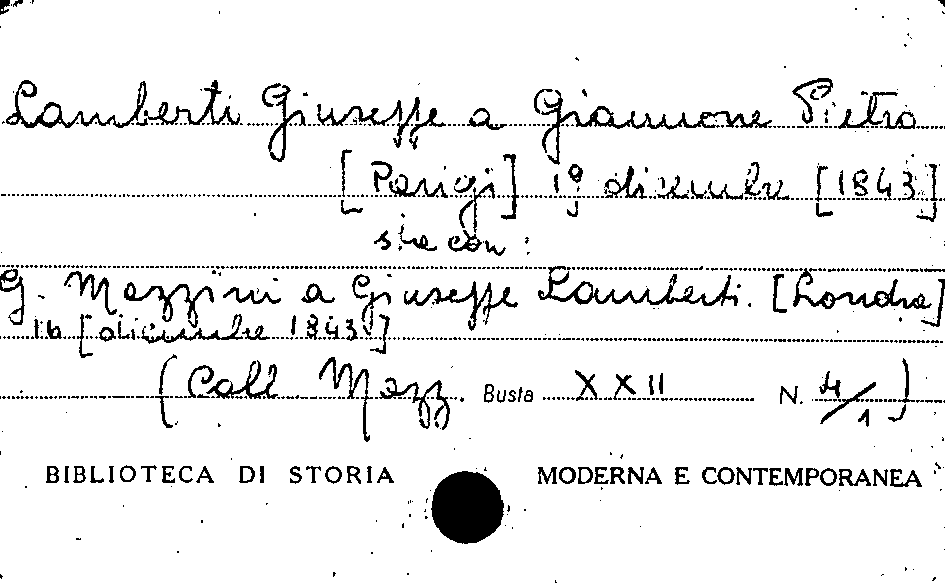 Lamberti Giuseppe a Giannone Pietro
[Parigi] 19 dicembre [1843]
sta con:
G. Mazzini a Giuseppe Lamberti. [Londra]
16 [dicembre 1843]
(Coll. Mazz. Busta XXII N. 4/1)
BIBLIOTECA DI STORIA MODERNA E CONTEMPORANEA